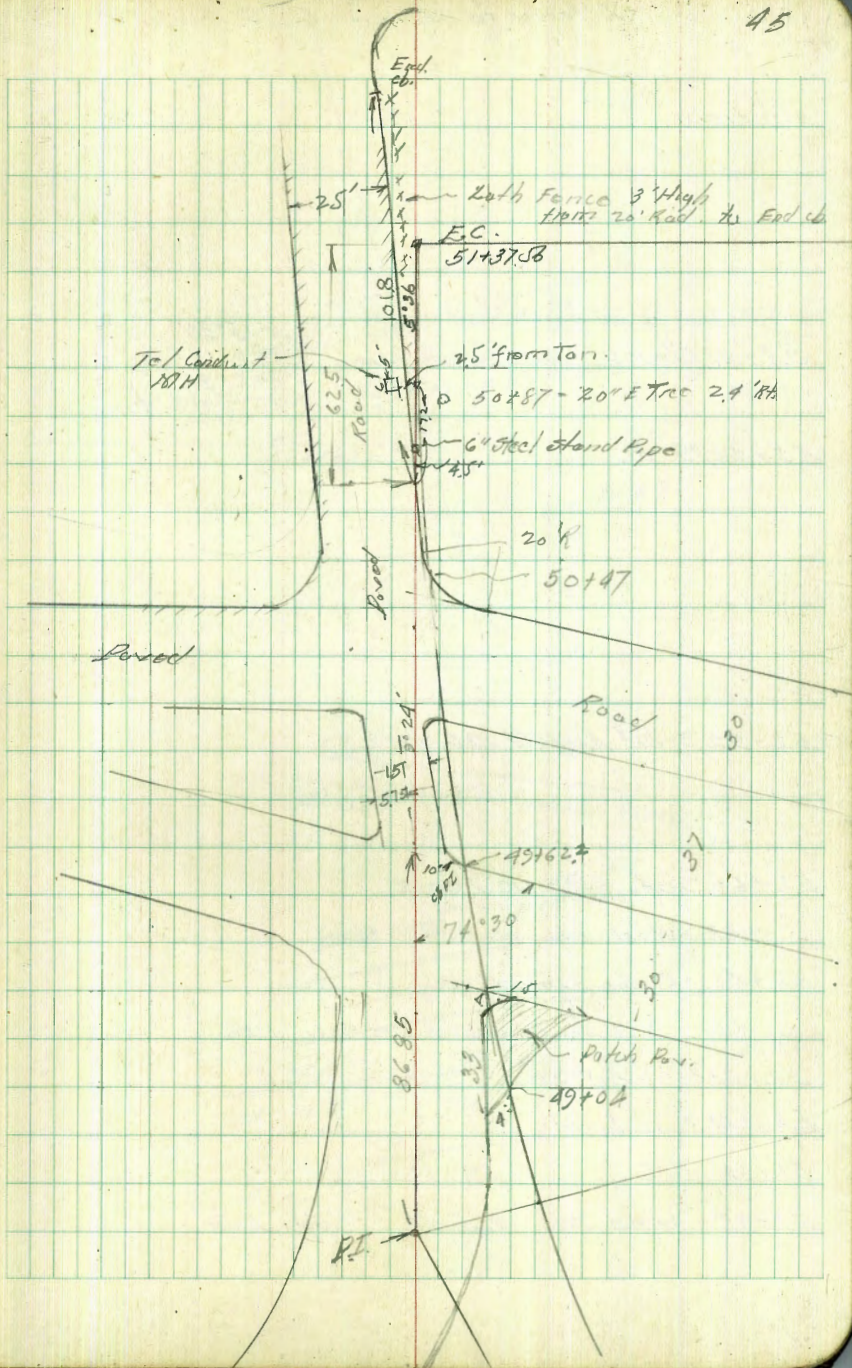 45
End
cb.
25'
Lath Fence 3' High
from 20' Rad. to End cb.
E.C.
51+37.56
101.8
5°36
Tel Conduit
MH
6'
5'
62.5
Road
2.5' from Tan.
50+87 - 20" E Tree 2.4' Rt.
17.2
6" Steel Stand Pipe
4.5'
20' R
50+47
Paved
Paved
Road
30
5°24'
15
5.75
37
49+62.2
10'
74°30
30
15
86.85
33
Patch Pav.
49+04
4'
P.I.